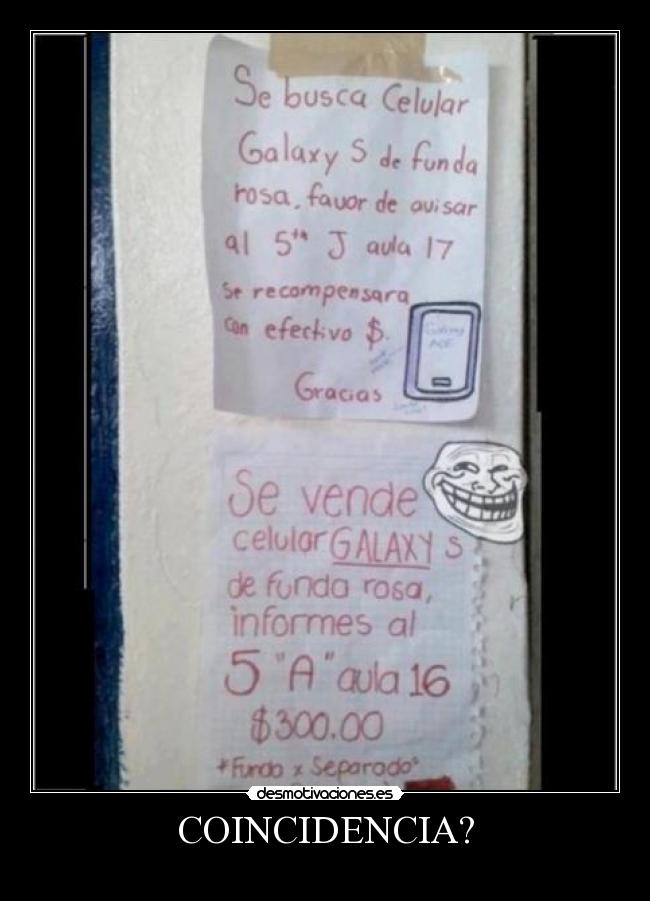 Se busca Celular
Galaxy S de funda
rosa, favor de avisar
al 5to J aula 17
se recompensara
con efectivo $.
Gracias
Se vende
celular GALAXY S
de funda rosa,
informes al
5 "A" aula 16
$300.00
*Funda x Separado*
desmotivaciones.es
COINCIDENCIA?